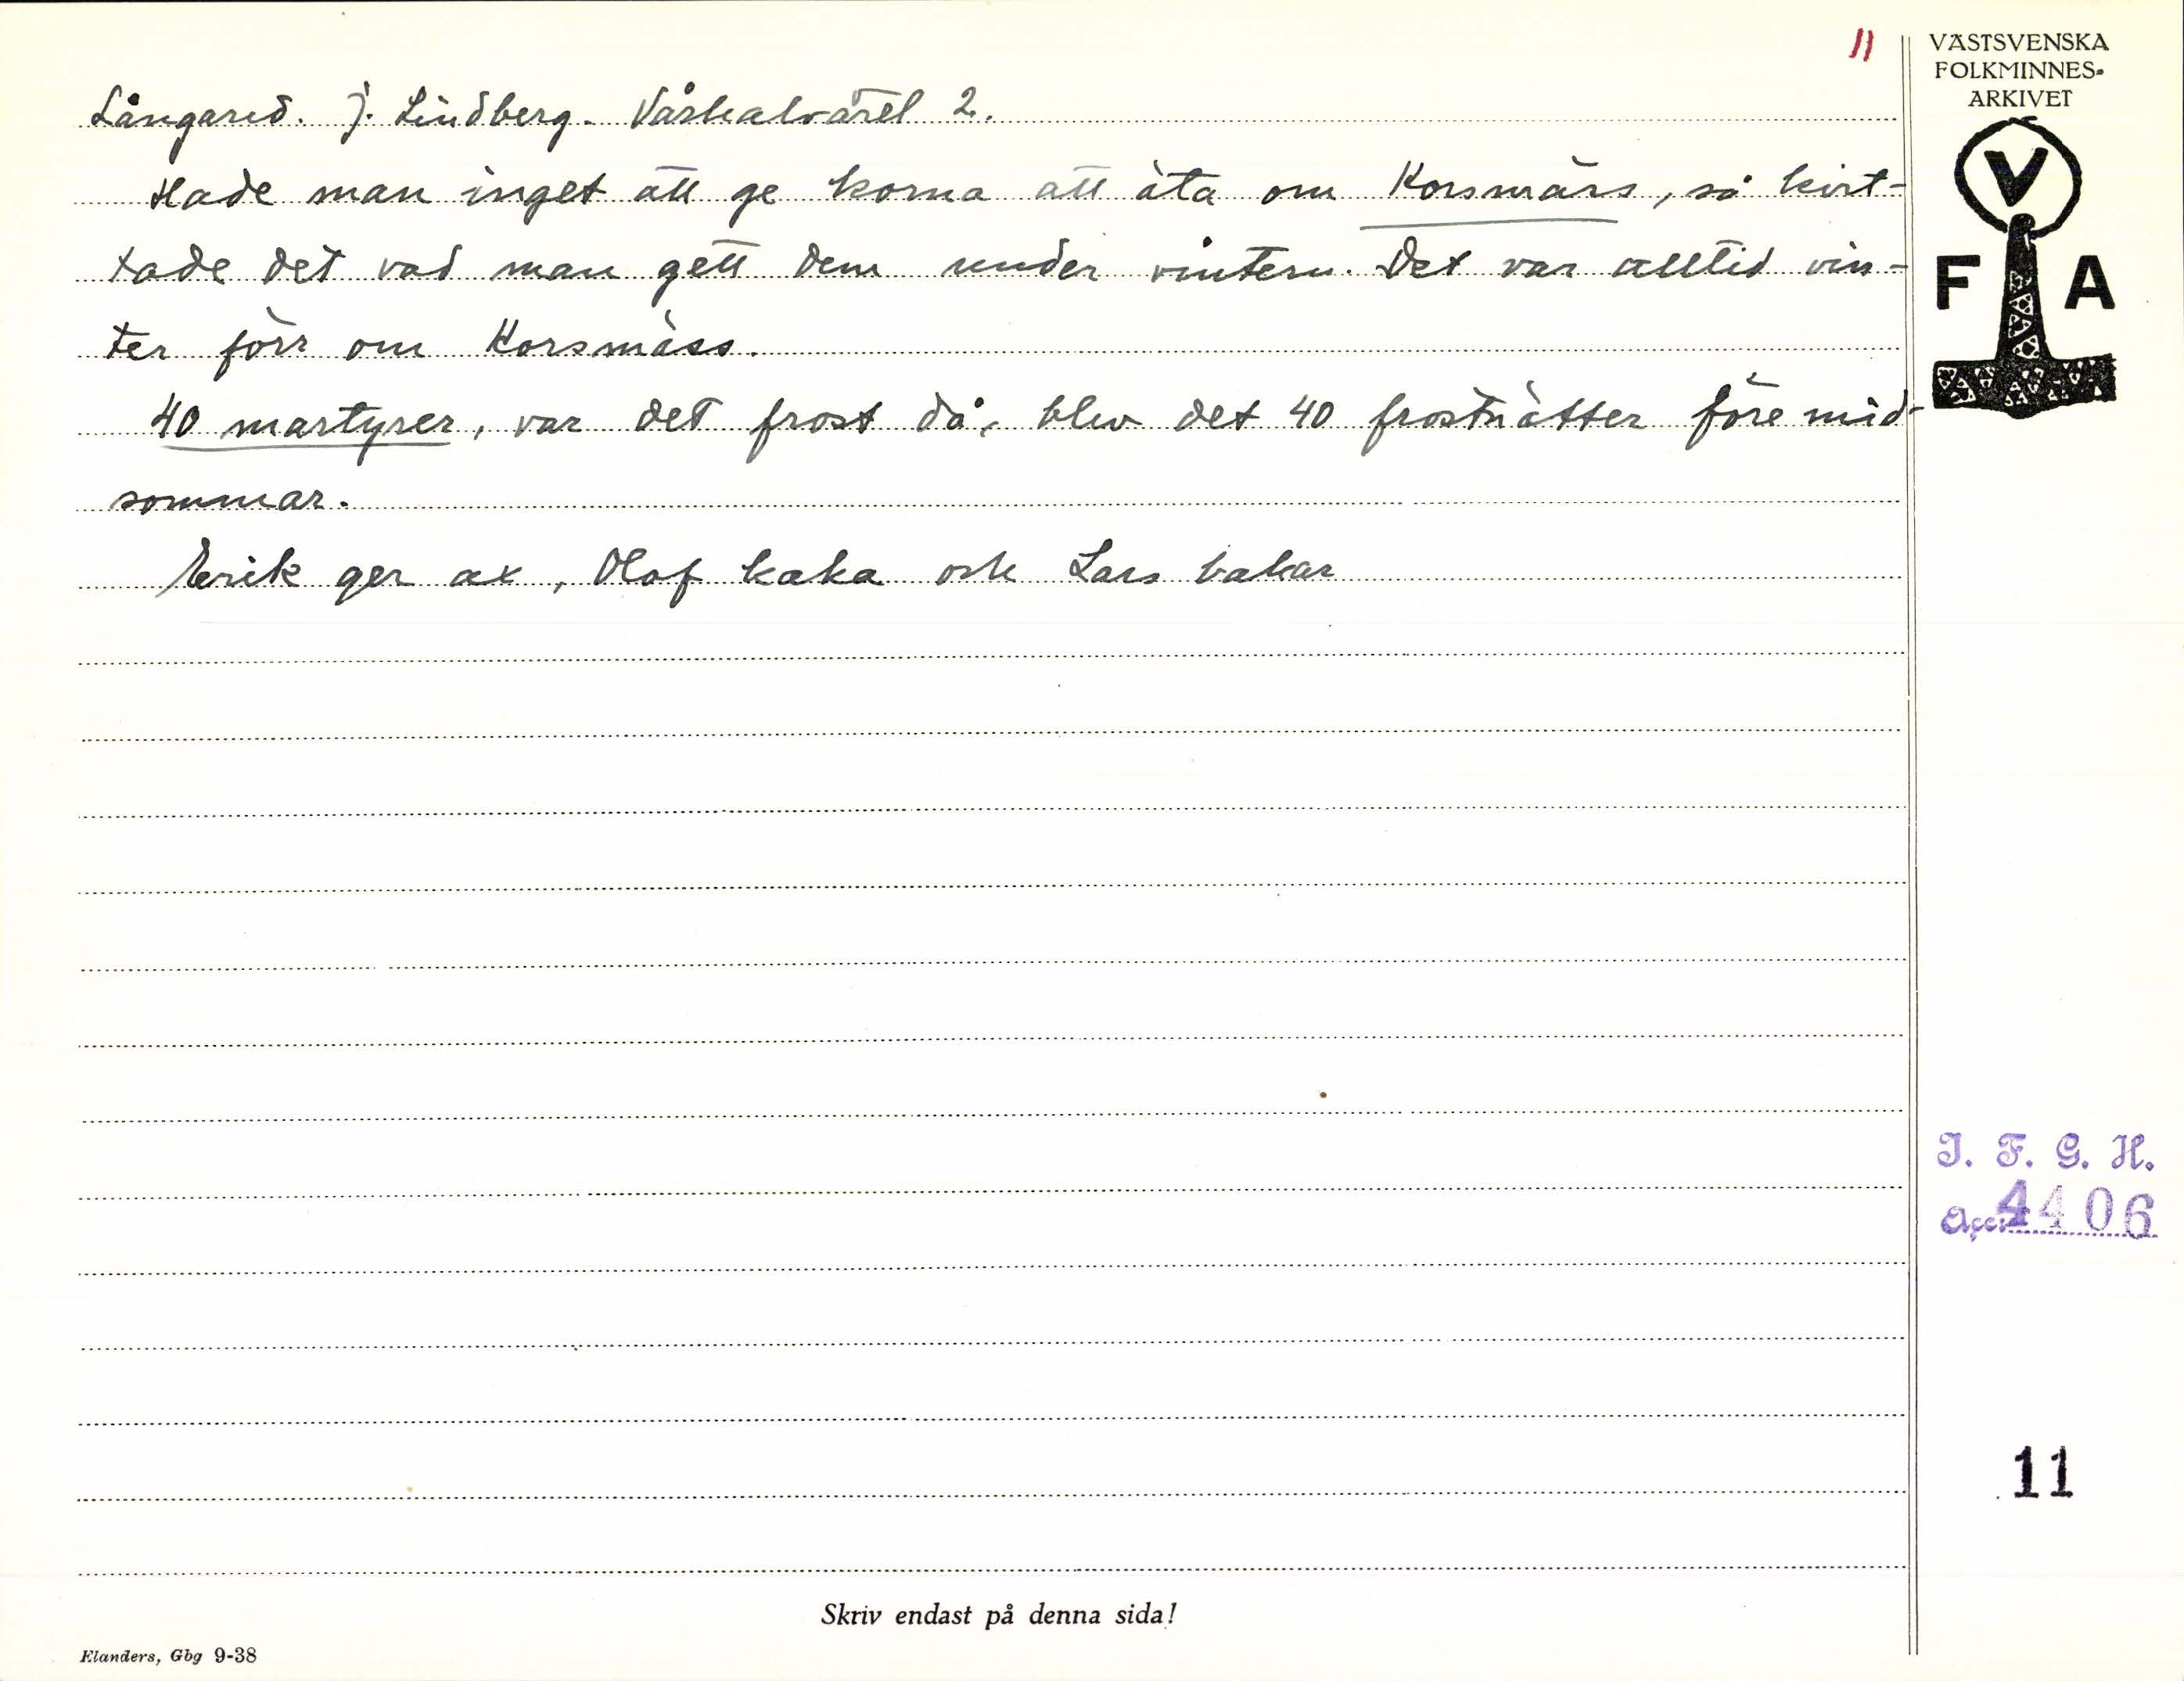 11
VÄSTSVENSKA
FOLKMINNES-
ARKIVET
V
F A
Långared. J. Lindberg. Vårhalvåret 2.
Hade man inget att ge korna att äta om Korsmäss, så kvit-
tade det vad man gett dem under vintern. Det var alltid vin-
ter förr om Korsmäss.
40 martyrer, var det frost då, blev det 40 frostnätter före mid-
sommar.
Erik ger ax, Olof kaka och Lars bakar
I. F. G. H.
Acc. 4406
11
Skriv endast på denna sida!
Elanders, Gbg 9-38